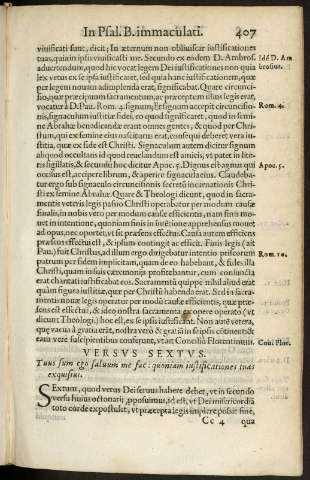 In Psal. B. immaculati. 407
viuificati sunt, dicit; In æternum non obliuiscar iustificationes
tuas, quia in ipsis viuificasti me. Secundo ex eodem D. Ambros. Idē D. Am
aduertendum, quod hic vocat legem Dei iustificationes non quia brosius.
lex vetus ex se ipsa iustificaret, sed quia hanc iustificationem, quæ
per legem nouam adimplenda erat, significabat. Quare circunci-
sio, quæ præcipuum sacramentum, ac præceptum illius legis erat,
vocatur à D. Pau. Rom. 4. signum; Et signum accepit circuncisio- Rom. 4.
nis, signaculum iustitiæ fidei, eo quod significaret, quod in semi-
ne Abrahæ benedicendæ erant omnes gentes, & quod per Chri-
stum, qui ex semine eius nasciturus erat, consequi deberet vera iu-
stitia, quæ ex fide est Christi. Signaculum autem dicitur signum
aliquod occultans id quod reuelandum est amicis, vt patet in lite-
ris sigillatis, & secundum hoc dicitur Apoc. 5. Dignus est agnus qui Apoc. 5.
occisus est, accipere librum, & aperire signacula eius. Claudeba-
tur ergo sub signaculo circuncisionis secretū incarnationis Chri-
sti ex semine Abrahæ. Quare & Theologi dicunt, quod in sacra-
mentis veteris legis passio Christi operabatur per modum causæ
finalis, in nobis vero per modum causæ efficientis, nam finis mo-
uet in intentione, quoniam finis in intētione apprehensus mouet
ad opus, nec oportet, vt sit præsens effectui. Causa autem efficiens
præsens effectui est, & ipsum contingit ac efficit. Finis legis (ait
Pau.) fuit Christus, ad illum ergo dirigebatur intentio priscorum Rom. 10.
patrum per fidem implicitam, quam de eo habebant, & fides illa
Christi, quam in suis cæremonijs profitebantur, cum coniuncta
erat charitati iustificabat eos. Sacramentū quippe nihil aliud erat
quàm figura iustitiæ, quæ per Christū habenda erat. Sed in sacra-
mentis nouæ legis operatur per modū causæ efficientis, quæ præ-
sens est effectui, & ideo nostra sacramenta ex opere operato (vt
dicunt Theologi) hoc est, ex se ipsis iustificant. Non autē vetera,
quæ vacua à gratia erāt, nostra verò & gratiā in seipsis cōtinent &
eam vere suscipientibus conferunt, vt ait Conciliū Florentinum. Cōci. Flor.
VERSVS SEXTVS.
Tuus sum ego saluum me fac: quoniam iustificationes tuas
exquisiui.
SEXTUM, quod verus Dei seruus habere debet, vt in secundo
versu huius octonarij pposuimus, id est, vt Dei misericordiā
toto corde exposcat, vt præcepta legis implere possit sine,
Cc 4 qua